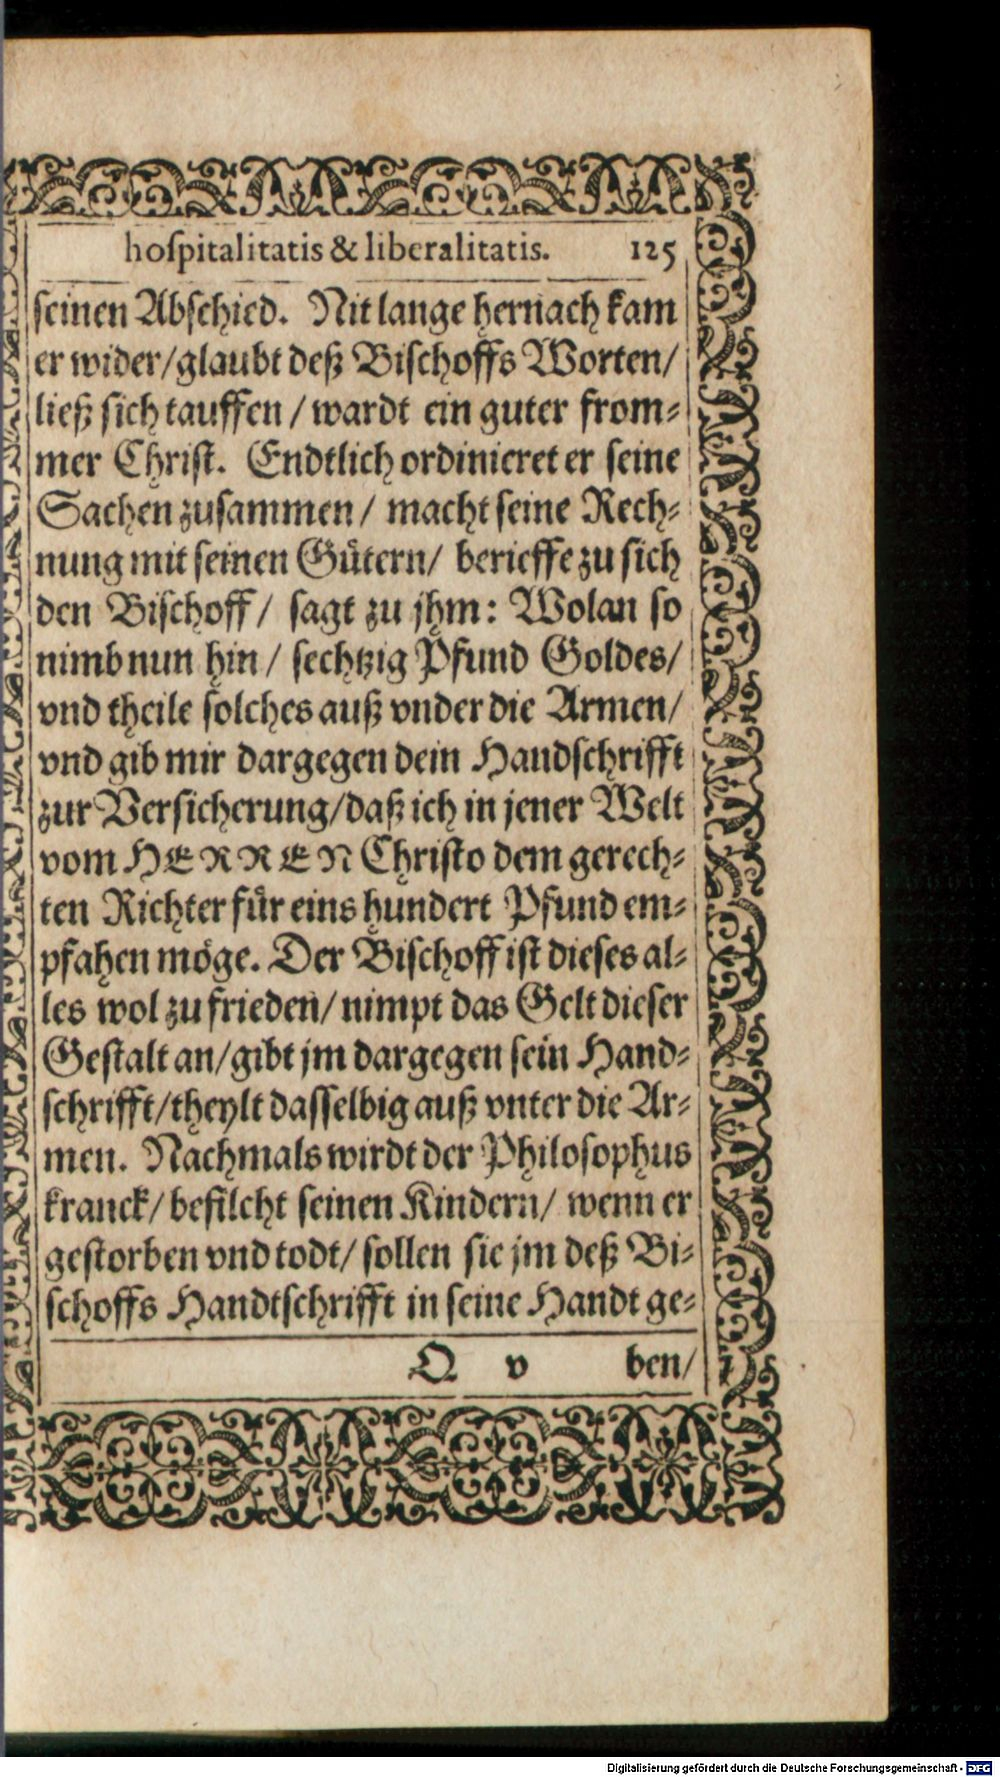 hoſpitalitatis & liberalitatis. 125
ſeinen Abſchied. Nit lange hernach kam
er wider/glaubt deß Biſchoffs Worten/
ließ ſich tauffen / wardt ein guter from⸗
mer Chriſt. Endtlich ordinieret er ſeine
Sachen zuſammen / macht ſeine Rech⸗
nung mit ſeinen Guͤtern/ berieffe zu ſich
den Biſchoff / ſagt zu jhm: Wolan ſo
nimb nun hin / ſechtzig Pfund Goldes/
vnd theile ſolches auß vnder die Armen/
vnd gib mir dargegen dein Handſchrifft
zur Verſicherung/daß ich in jener Welt
vom HERREN Chriſto dem gerech⸗
ten Richter fuͤr eins hundert Pfund em⸗
pfahen moͤge. Der Biſchoff iſt dieſes al⸗
les wol zu frieden/ nimpt das Gelt dieſer
Geſtalt an/gibt jm dargegen ſein Hand⸗
ſchrifft/theylt daſſelbig auß vnter die Ar⸗
men. Nachmals wirdt der Philoſophus
kranck/ befilcht ſeinen Kindern/ wenn er
geſtorben vnd todt/ ſollen ſie jm deß Bi⸗
ſchoffs Handtſchrifft in ſeine Handt ge⸗
Q v ben/
Digitalisierung gefördert durch die Deutsche Forschungsgemeinschaft - DFG